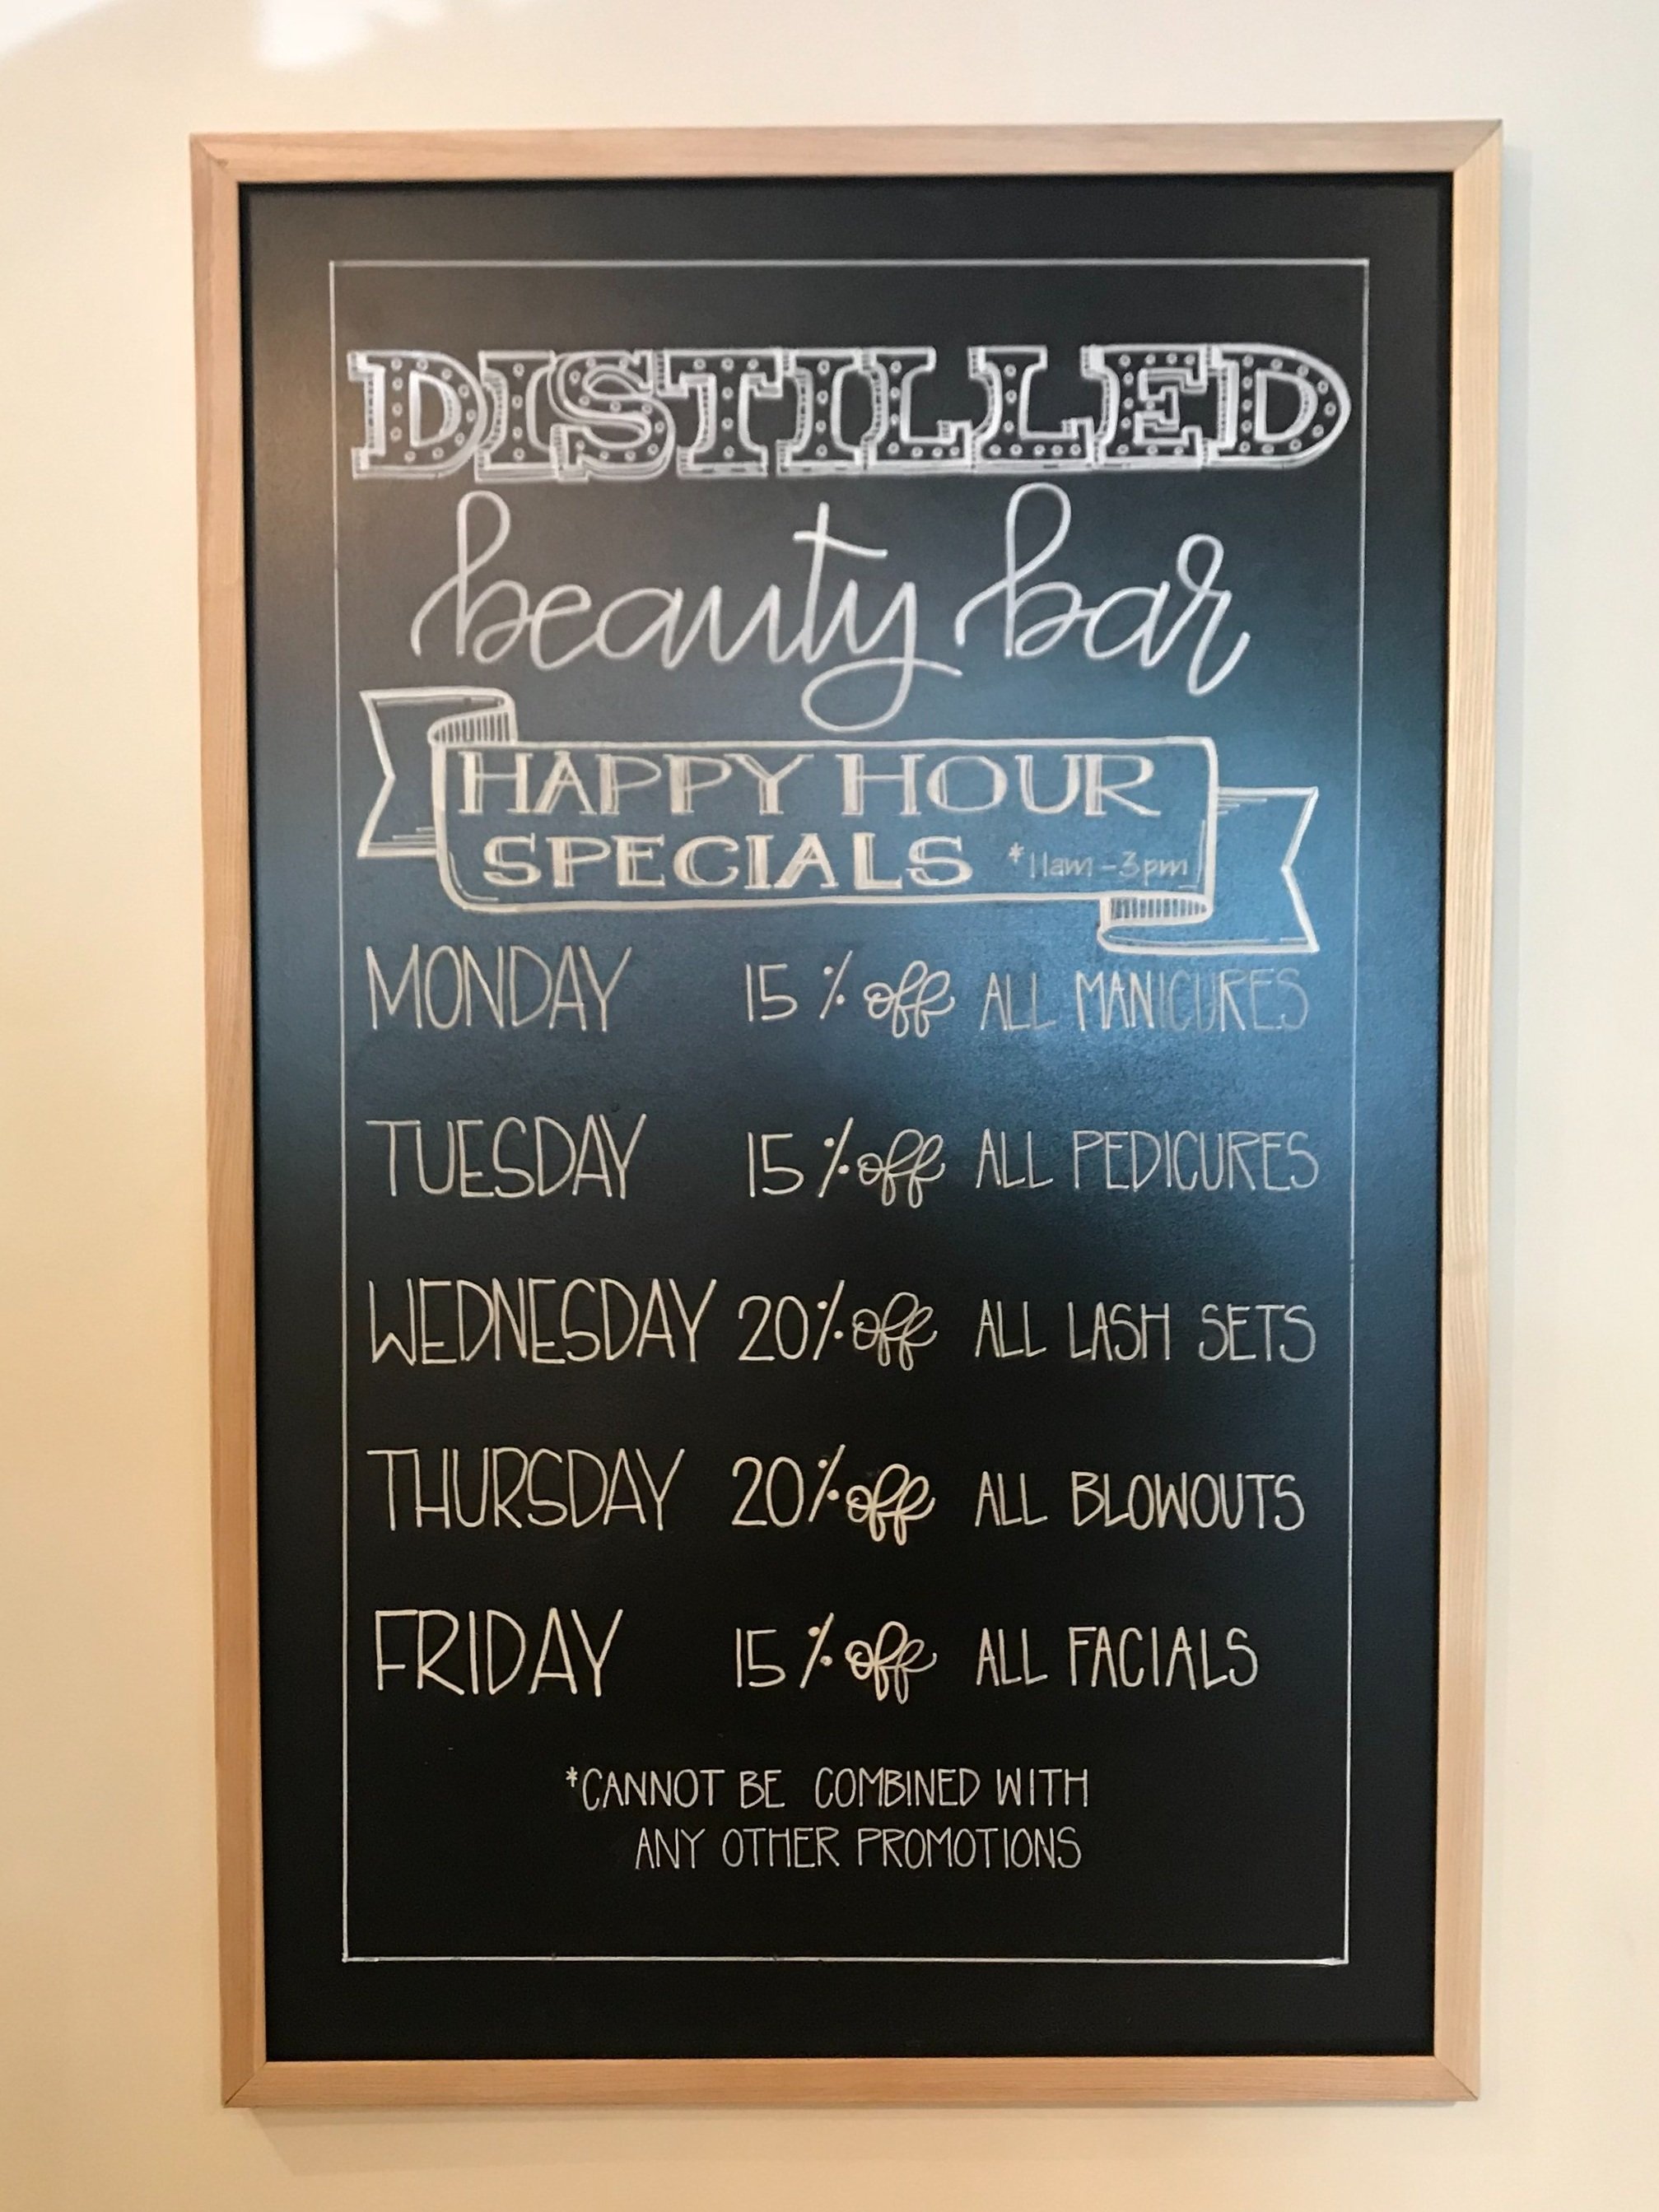 DISTILLED
beauty bar
HAPPY HOUR
SPECIALS *11am-3pm
MONDAY 15% off ALL MANICURES
TUESDAY 15% off ALL PEDICURES
WEDNESDAY 20% off ALL LASH SETS
THURSDAY 20% off ALL BLOWOUTS
FRIDAY 15% off ALL FACIALS
*CANNOT BE COMBINED WITH
ANY OTHER PROMOTIONS